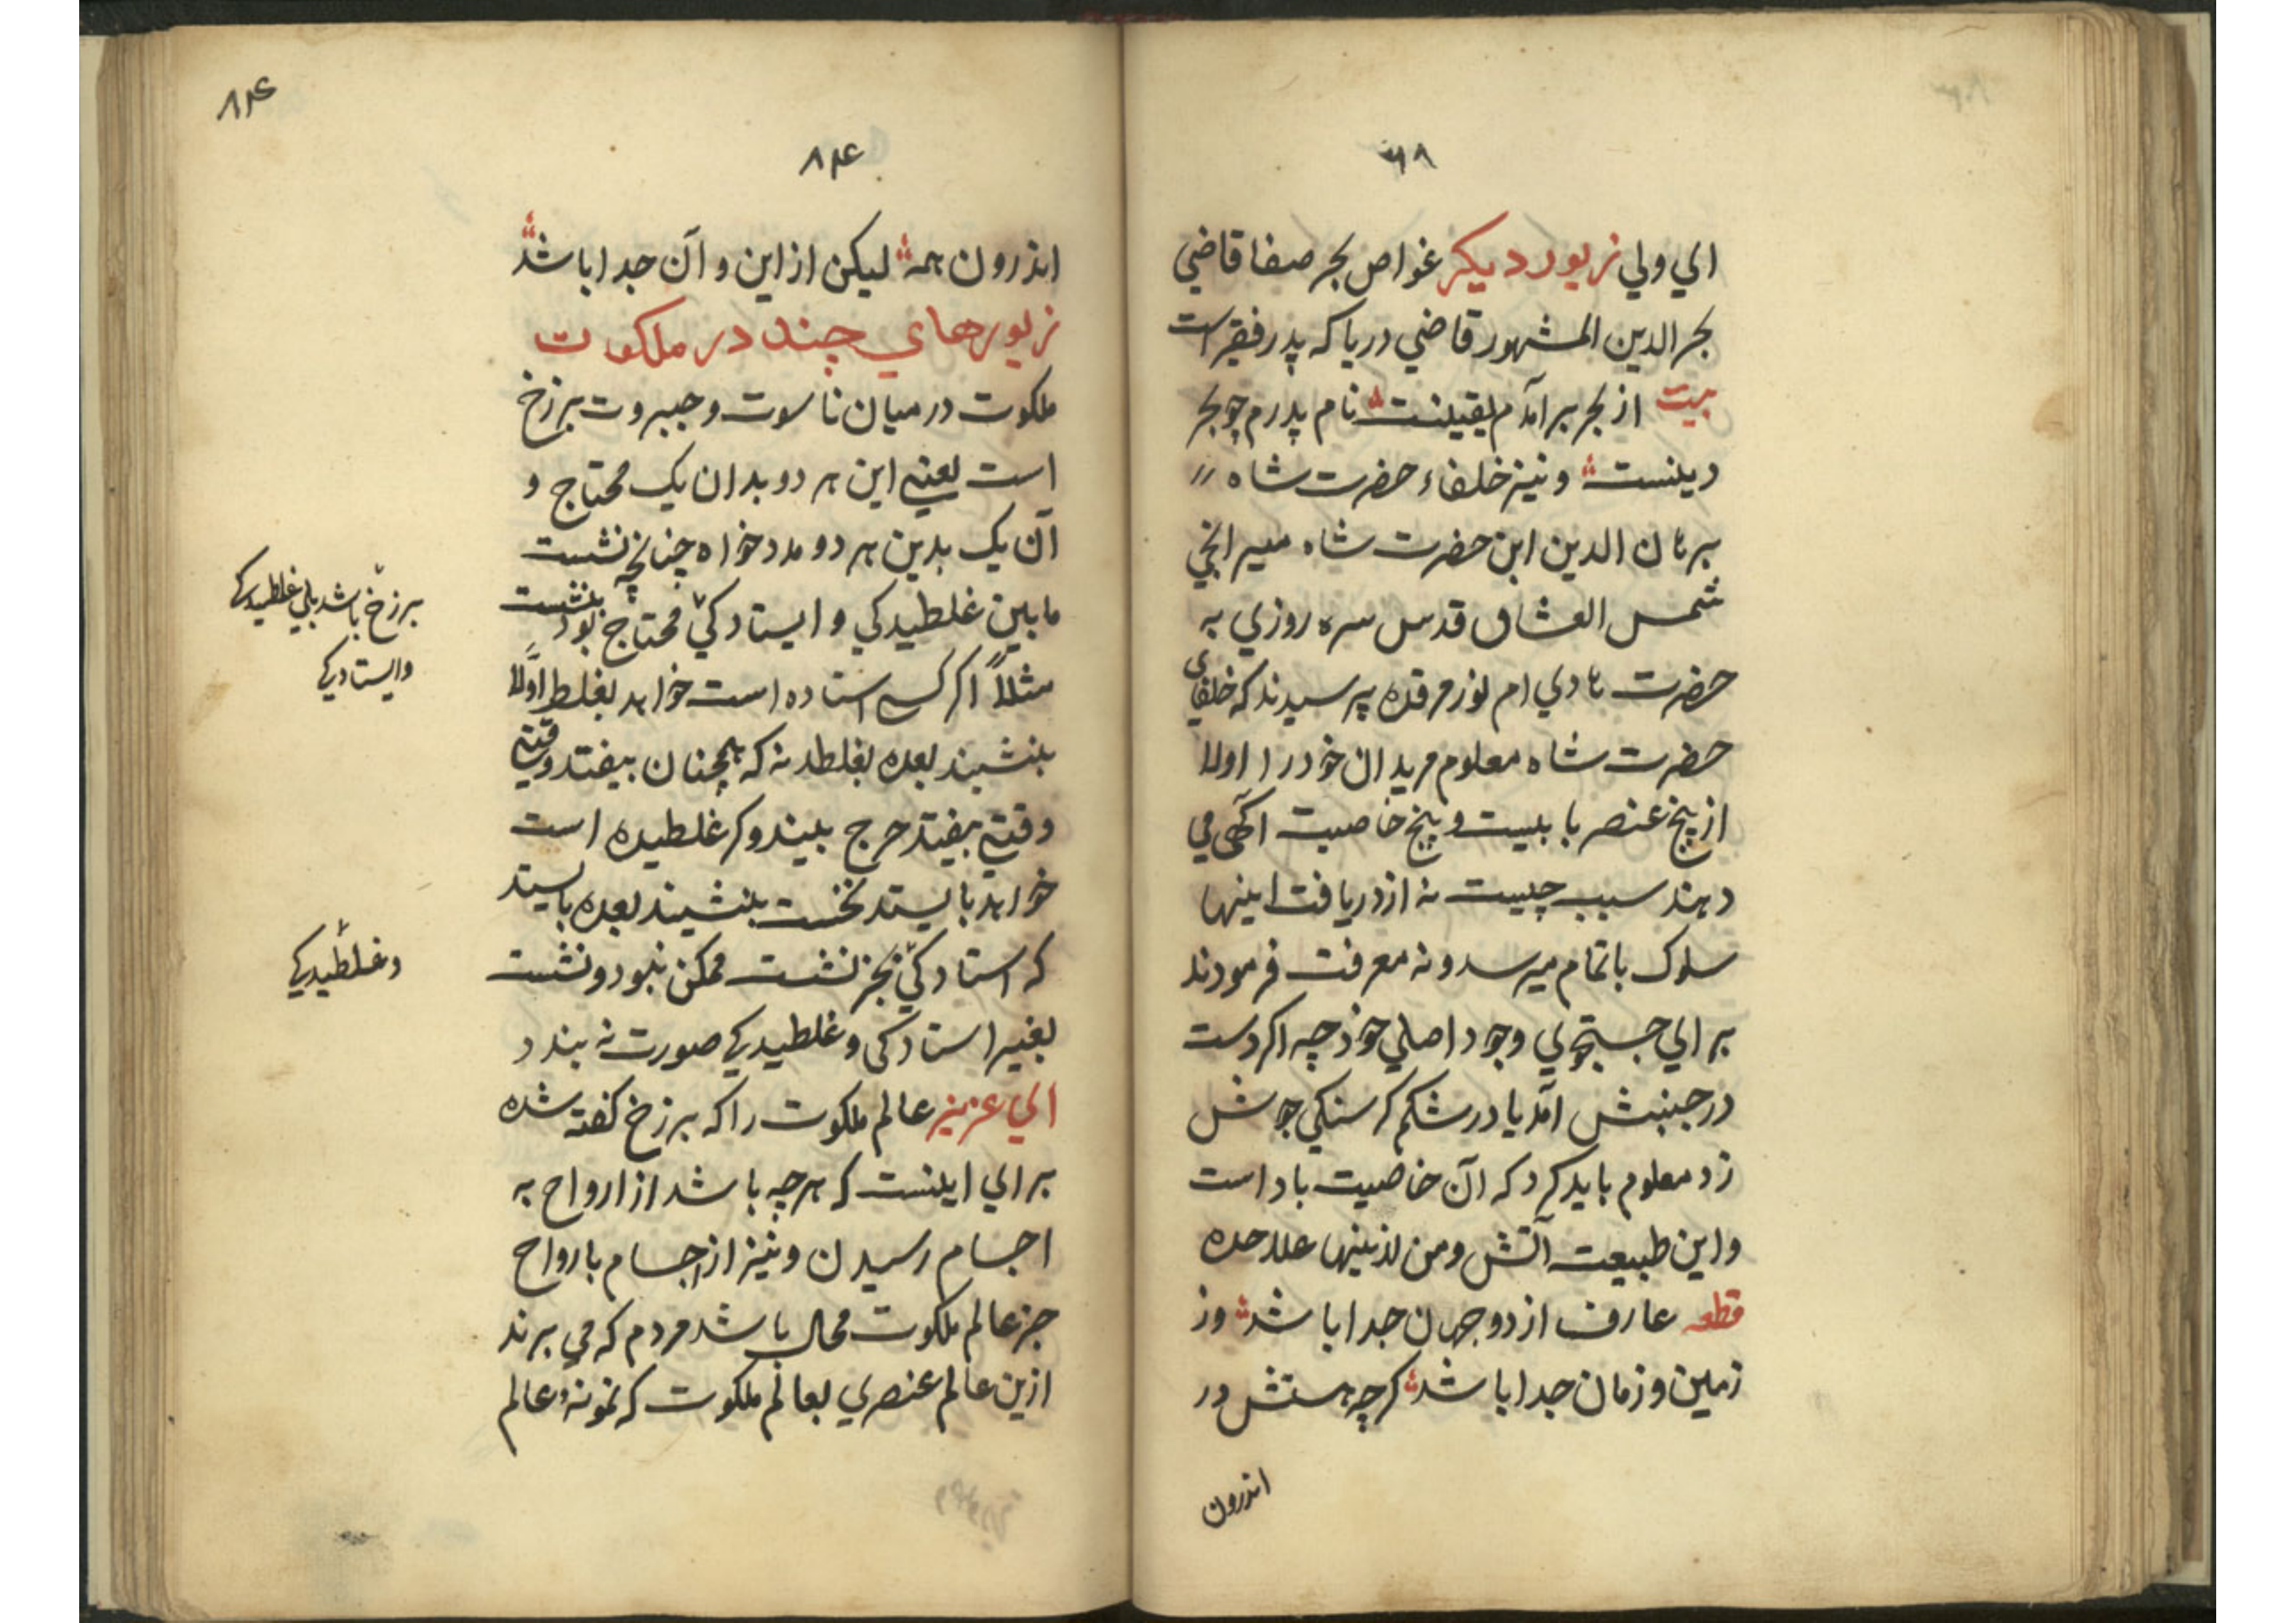 الي ولي زيور ديكر غواص بحر صفا قاضي
بحر الدين المشهور قاضي دريا كه پدر فقير است
بيت از بحر برآمدم يقينست نام پدرم چو بحر
دينست ونيز خلفاء حضرت شاه
برهان الدين ابن حضرت شاه ميرانجي
شمس العشاق قدس سره روزي به
حضرت هادي ام نور مرقده پرسيدند كه خلفاي
حضرت شاه معلوم مريدان خود را اولا
از پنج عنصر با بيست و پنج خاصيت آگهي مي
دهند سبب چيست نه از دريافت اينها
سلوك باتمام ميرسد و نه معرفت فرمودند
براي جستجوي وجود اصلي خود چه اكر دست
در جنبش آمد يا در شكم كرسنكي جوش
زد معلوم بايد كرد كه آن خاصيت باد است
و اين طبيعت آتش ومن ازينها علاحده
قطعه عارف از دو جهان جدا باشد وز
زمين و زمان جدا باشد كرچه هستش در
اندرون
٨٢٤
٨٢٤
اندرون همه ليكن از اين و آن جدا باشد
زيورهاي چند در ملكوت
ملكوت در ميان ناسوت و جبروت برزخ
است يعني اين هر دو بدان يك محتاج و
آن يك بدين هر دو مدد خواه چنانچه نشست
مابين غلطيدكي و ايستادكي محتاج بود بنشست
مثلاً اكر كسي استاده است خواهد بغلطد اولاً
بنشيند بعده بغلطد نه كه همچنان بيفتد وقتي
وقتي بيفتد حرج بيند و كر غلطيده است
خواهد بايستد نخست بنشيند بعده بايستد
كه استادكي بجز نشست ممكن نبود و نشست
بغير استادكي و غلطيدكي صورت نه بندد
اي عزيز عالم ملكوت را كه برزخ كفته شده
براي اينست كه هرچه باشد از ارواح به
اجسام رسيدن و نيز از اجسام بارواح
جز عالم ملكوت محال باشد مردم كه مي برند
ازين عالم عنصري بعالم ملكوت كه نمونهٔ عالم
برزخ باشد غلطيدكي
وايستادكي
وغلطيدكي